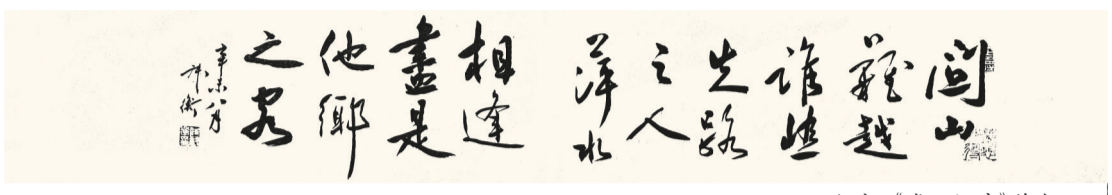 關山
難越
誰悲
失路
之人
萍水
相逢
盡是
他鄉
之客
辛未八月